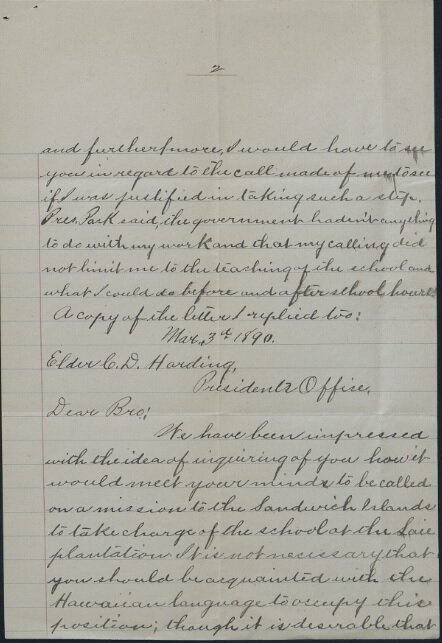 2
and furthermore, I would have to see
you in regard to the call made of me to see
if I was justified in taking such a step.
Pres. Park said, the government hadn't anything
to do with my work and that my calling did
not limit me to the teaching of the school and
what I could do before and after school hours.
A copy of the letter I replied too:
Mar. 3rd 1890.
Elder C. D. Harding,
Presidents Office,
Dear Bro;
We have been impressed
with the idea of inquiring of you how it
would meet your minds to be called
on a mission to the Sandwich Islands
to take charge of the school at the Laie
plantation. It is not necessary that
you should be acquainted with the
Hawaiian language to occupy this
position; though it is desirable that